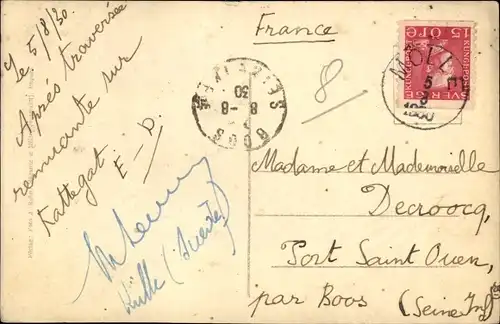 Le 5/8/30.
Après traversée
remuante sur
Kattegat
E-D.
(Suède)
France
8
15 ÖRE
KUNGL. POST
SVERIGE
MÖLLE
5 8
1930
BOOS
8-8
30
Madame et Mademoiselle
Decroocq,
Port Saint Ouen,
par Boos (Seine Inf)